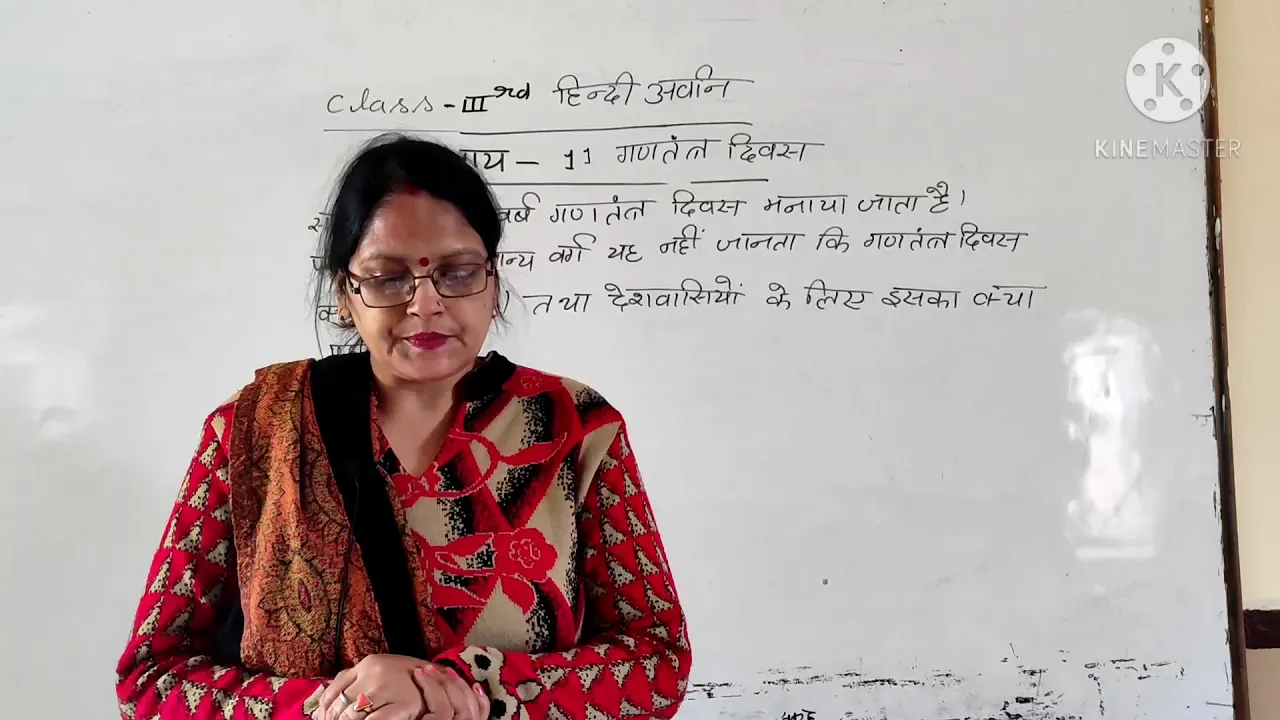 Class - IIIrd हिन्दी अर्वान
- 11 गणतंत्र दिवस
वर्ष गणतंत्र दिवस मनाया जाता है।
वर्ग यह नहीं जानता कि गणतंत्र दिवस
तथा देशवासियों के लिए इसका क्या
KINEMASTER